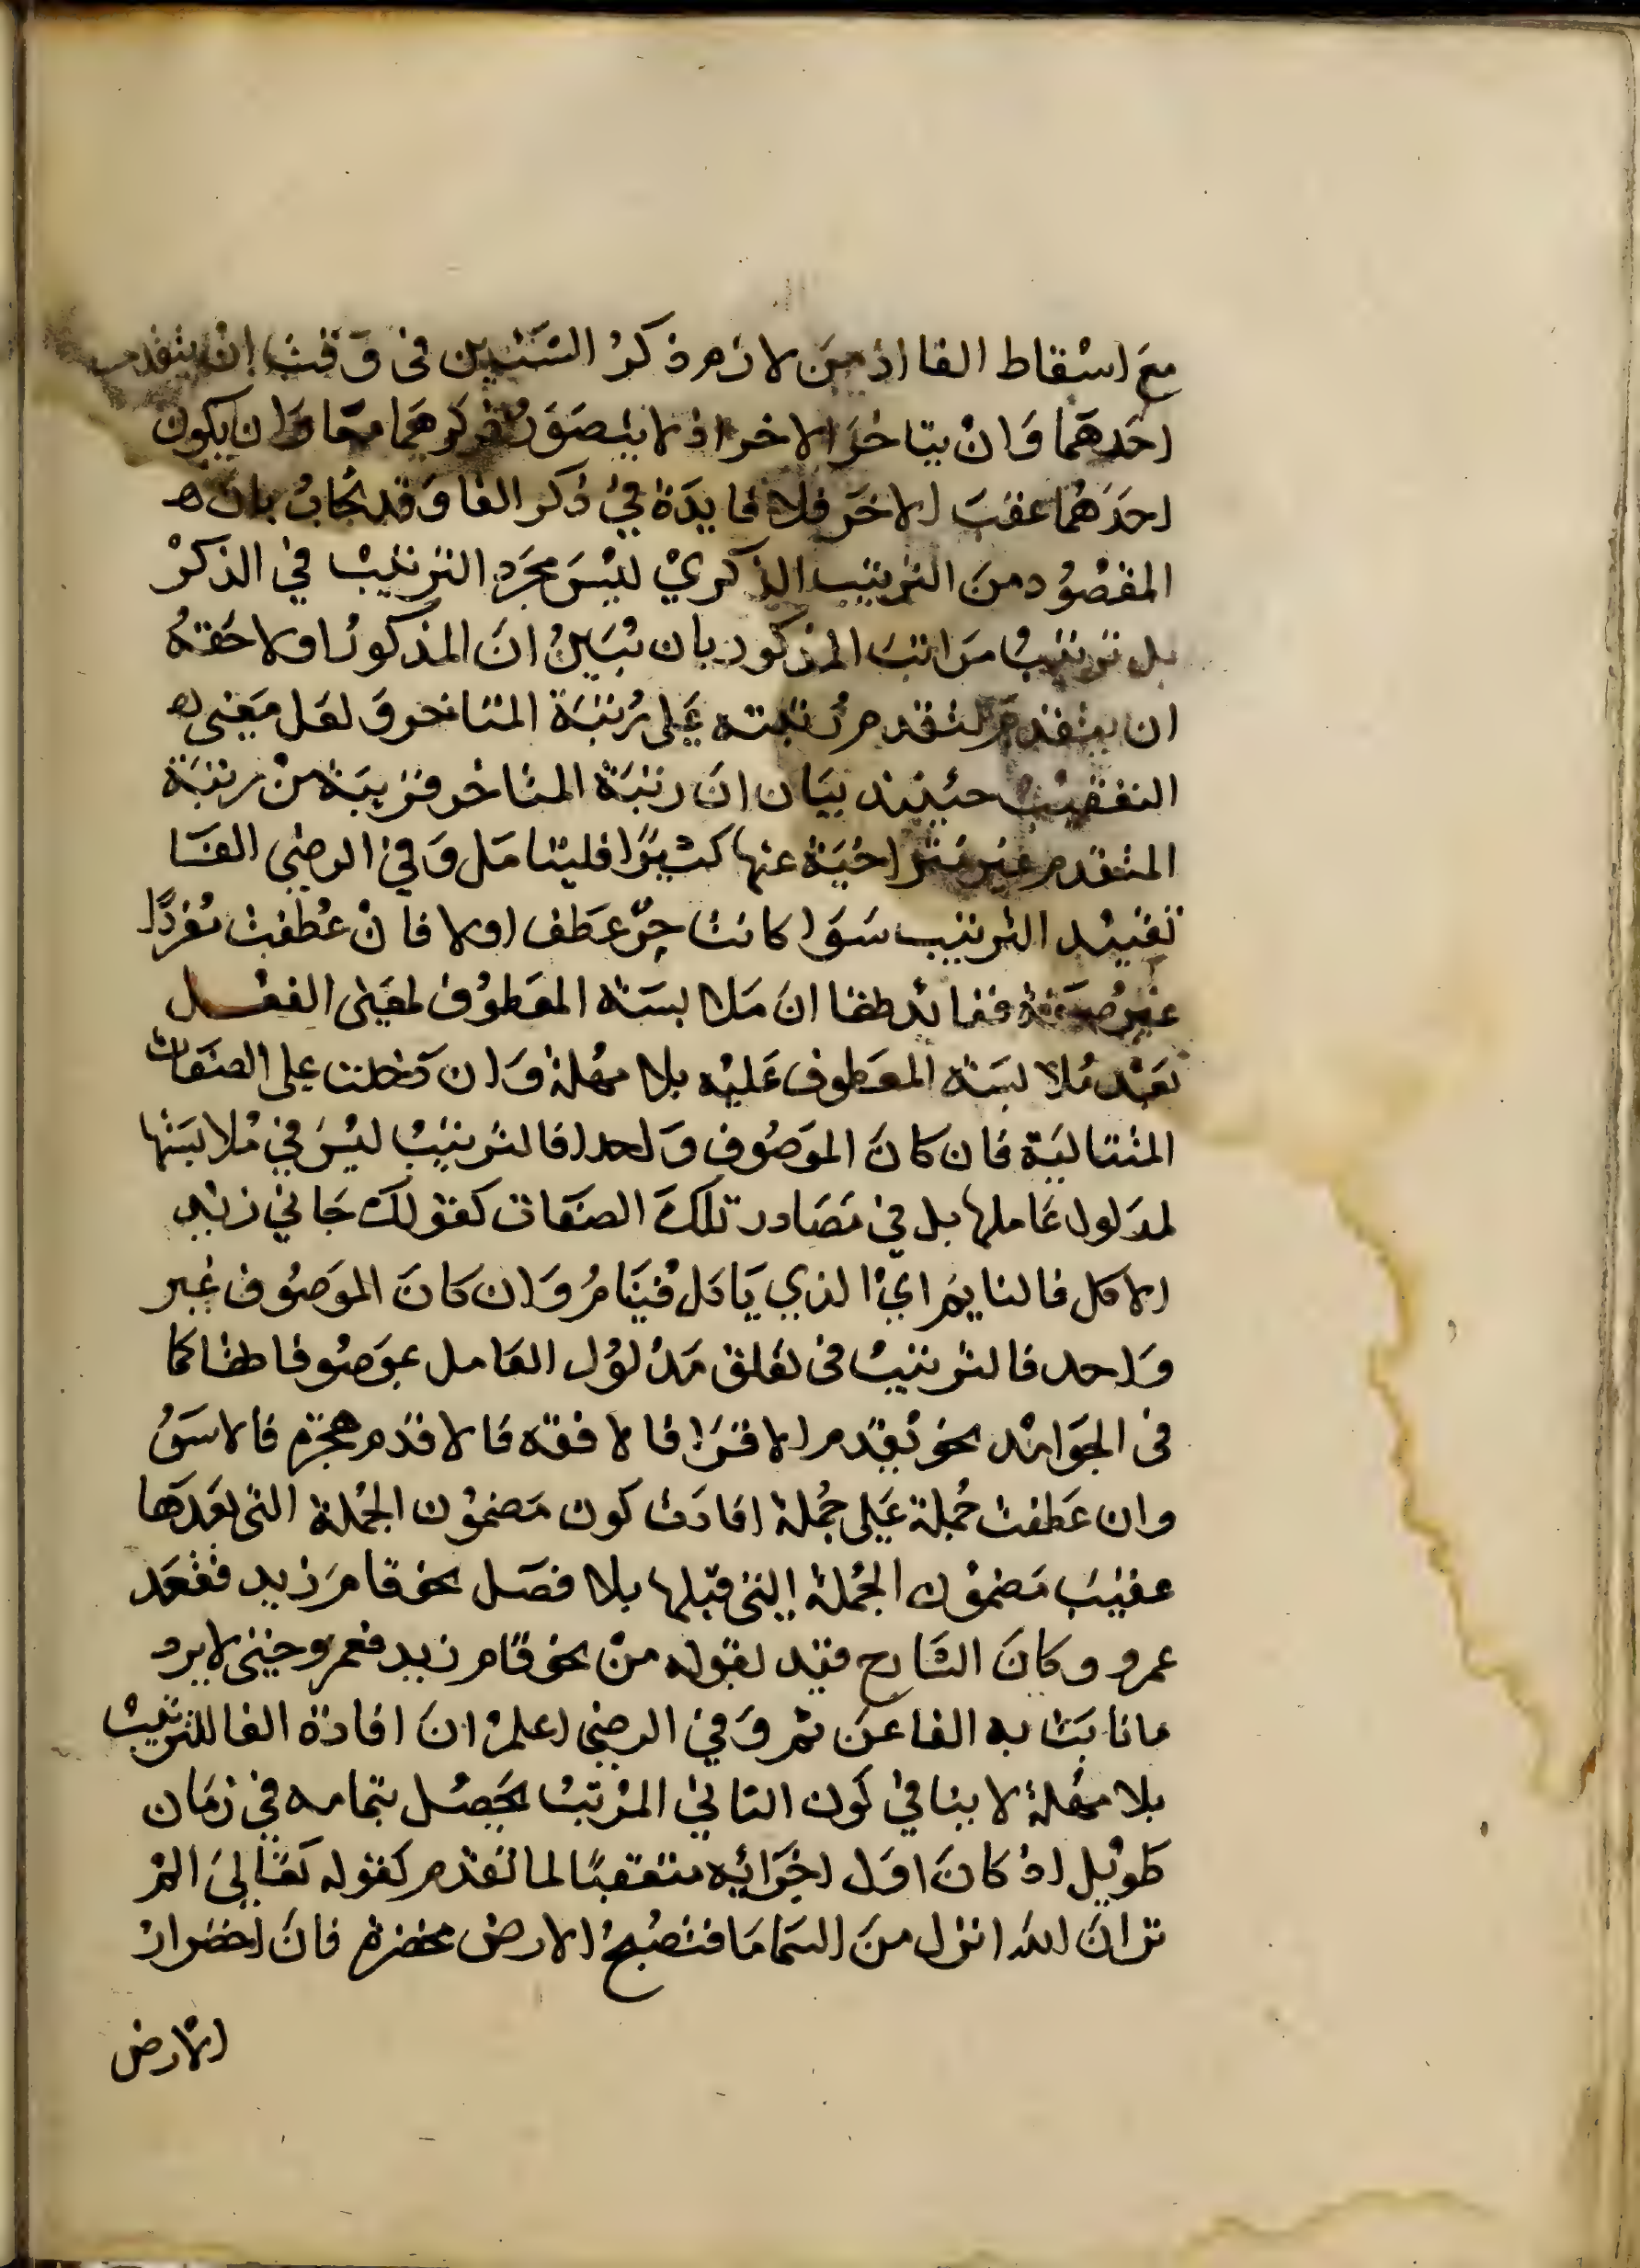 مع اسقاط الفا اذ من لازم ذكر الشيين فى وقت ان يتقدم
احدهما وان يتاخر الاخر اذ لا يتصور ذكرهما معا وان يكون
احدهما عقب الاخر فلا فايدة في ذكر الفا وقد يجاب بان
المقصود من الترتيب الذكري ليس مجرد الترتيب في الذكر
بل ترتيب مراتب المذكور بان يبين ان المذكور اولا حقه
ان يتقدم لتقدم رتبته على رتبة المتاخر ولعل معنى
التعقيب حينيذ بيان ان رتبة المتاخر قريبة من رتبة
المتقدم غير متراخية عنها كثيرا فليتامل وفي الرضي الفا
تفيد الترتيب سوا كانت حرف عطف اولا فان عطفت مفردا
غير صفة ففايدطفا ان ملابسة المعطوف لمعنى الفعل
بعد ملابسة المعطوف عليه بلا مهلة وان دخلت على الصفات
المتتالية فان كان الموصوف واحدا فالترتيب ليس في ملابستها
لمدلول عاملها بل في مصادر تلك الصفات كقولك جاني زيد
الاكل فالنايم اي الذي ياكل فينام وان كان الموصوف غير
واحد فالترتيب فى تعلق مدلول العامل بموصوفاطفا كما
فى الجوامد نحو يقدم الاقرا فالافقه فالاقدم هجرة فالاسن
وان عطفت جملة على جملة افادت كون مضمون الجملة التى بعدها
عقيب مضمون الجملة التى قبلها بلا فصل نحو قام زيد فقعد
عمرو وكان الشارح قيد بقوله من نحو قام زيد فعمرو حتى لا يرد
ما نابت به الفا عن ثم وفي الرضي اعلم ان افادة الفا للترتيب
بلا مهلة لا ينافي كون الثاني المرتب يحصل بتمامه في زمان
طويل اذ كان اول اجزائه متعقبا لما تقدم كقوله تعالى الم
تر ان الله انزل من السما ما فتصبح الارض مخضرة فان اخضرار
الارض